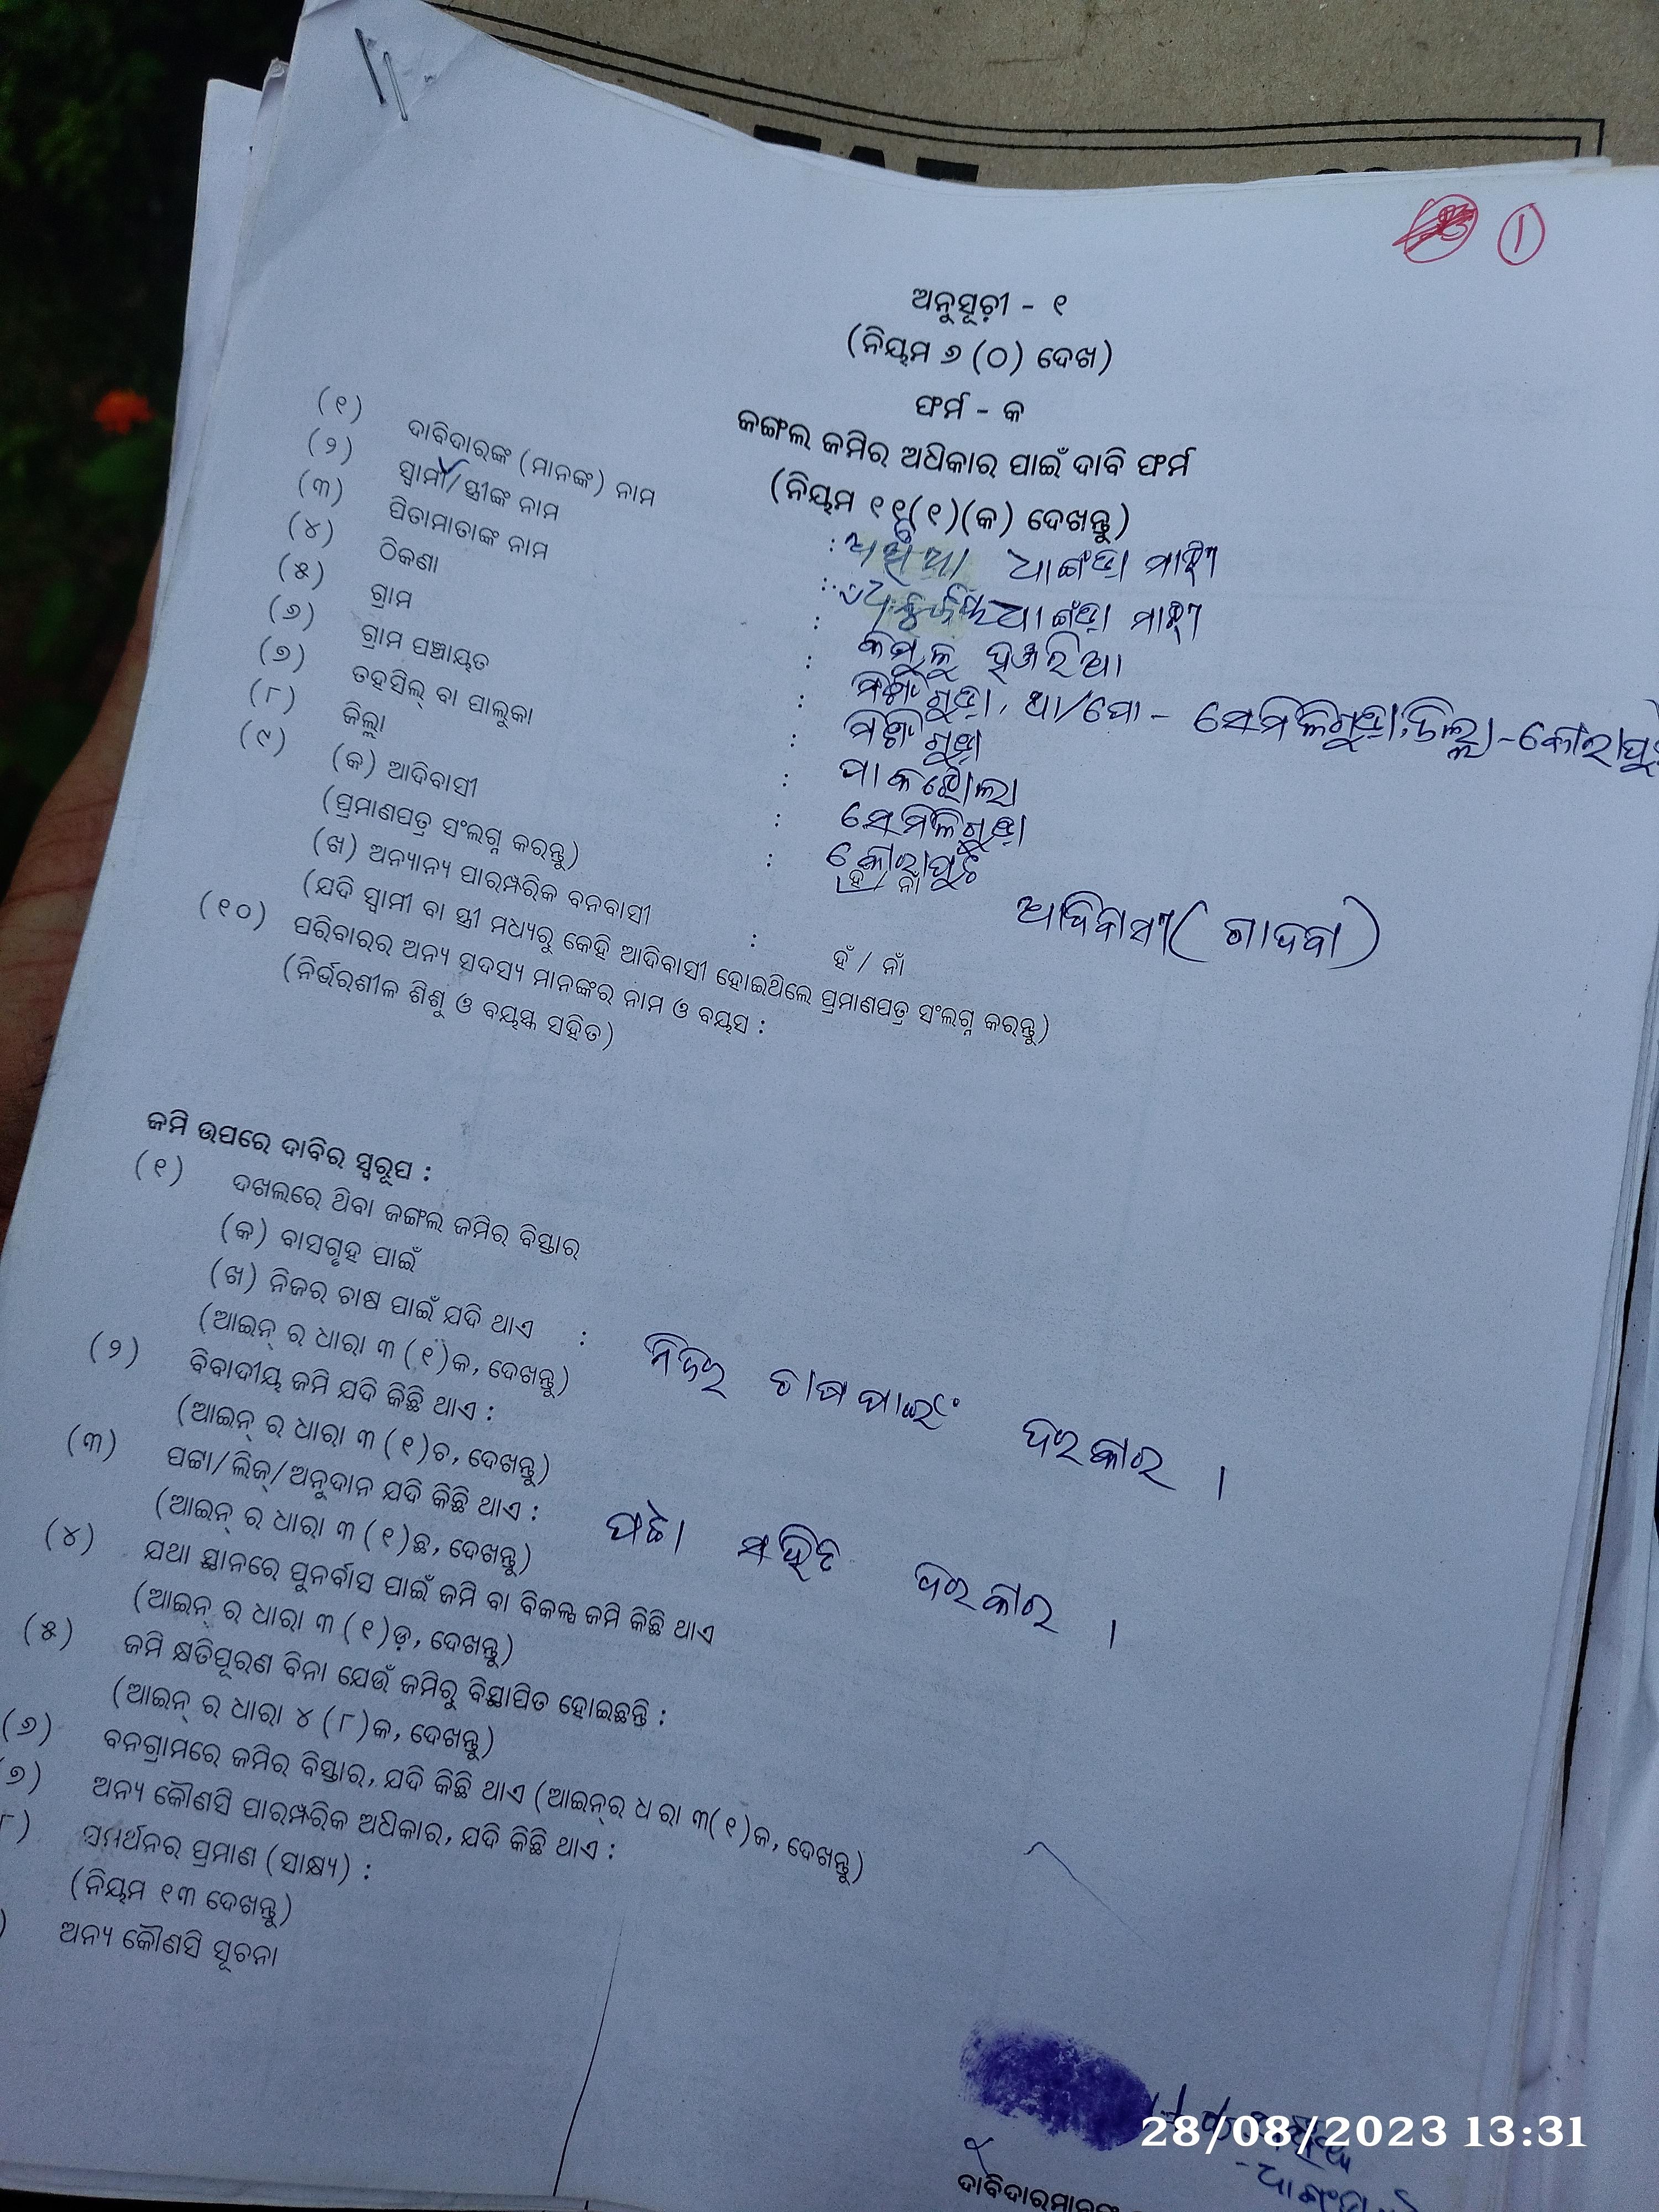 ୧
ଅନୁସୂଚୀ - ୧
(ନିୟମ ୬ (୦) ଦେଖ)
ଫର୍ମ - କ
ଜଙ୍ଗଲ ଜମିର ଅଧିକାର ପାଇଁ ଦାବି ଫର୍ମ
(ନିୟମ ୧୧(୧)(କ) ଦେଖନ୍ତୁ)
(୧) ଦାବିଦାରଙ୍କ (ମାନଙ୍କ) ନାମ : ଧାଙ୍ଗଡା ମାଝୀ
(୨) ସ୍ୱାମୀ/ସ୍ତ୍ରୀଙ୍କ ନାମ : ମାଝୀ
(୩) ପିତାମାତାଙ୍କ ନାମ :
(୪) ଠିକଣା : ଗୁଡ଼ା, ଥା/ପୋ- ସେମିଳିଗୁଡ଼ା, ଜିଲ୍ଲା-କୋରାପୁଟ
(୫) ଗ୍ରାମ :
(୬) ଗ୍ରାମ ପଞ୍ଚାୟତ : ପାକଝୋଲା
(୭) ତହସିଲ୍ ବା ପାଲୁକା : ସେମିଳିଗୁଡ଼ା
(୮) ଜିଲ୍ଲା : କୋରାପୁଟ
(୯) (କ) ଆଦିବାସୀ : ହଁ / ନାଁ ଆଦିବାସୀ (ଗାଦବା)
(ପ୍ରମାଣପତ୍ର ସଂଲଗ୍ନ କରନ୍ତୁ)
(ଖ) ଅନ୍ୟାନ୍ୟ ପାରମ୍ପରିକ ବନବାସୀ : ହଁ / ନାଁ
(ଯଦି ସ୍ୱାମୀ ବା ସ୍ତ୍ରୀ ମଧ୍ୟରୁ କେହି ଆଦିବାସୀ ହୋଇଥିଲେ ପ୍ରମାଣପତ୍ର ସଂଲଗ୍ନ କରନ୍ତୁ)
(୧୦) ପରିବାରର ଅନ୍ୟ ସଦସ୍ୟ ମାନଙ୍କର ନାମ ଓ ବୟସ :
(ନିର୍ଭରଶୀଳ ଶିଶୁ ଓ ବୟସ୍କ ସହିତ)
ଜମି ଉପରେ ଦାବିର ସ୍ୱରୂପ :
(୧) ଦଖଲରେ ଥିବା ଜଙ୍ଗଲ ଜମିର ବିସ୍ତାର
(କ) ବାସଗୃହ ପାଇଁ
(ଖ) ନିଜର ଚାଷ ପାଇଁ ଯଦି ଥାଏ : ନିଜର ଚାଷ ପାଇଁ ଦରକାର ।
(ଆଇନ୍ ର ଧାରା ୩ (୧)କ, ଦେଖନ୍ତୁ)
(୨) ବିବାଦୀୟ ଜମି ଯଦି କିଛି ଥାଏ :
(ଆଇନ୍ ର ଧାରା ୩ (୧)ଚ, ଦେଖନ୍ତୁ)
(୩) ପଟ୍ଟା/ଲିଜ୍/ଅନୁଦାନ ଯଦି କିଛି ଥାଏ : ପଟ୍ଟା ସହିତ ଦରକାର ।
(ଆଇନ୍ ର ଧାରା ୩ (୧)ଛ, ଦେଖନ୍ତୁ)
(୪) ଯଥା ସ୍ଥାନରେ ପୁନର୍ବାସ ପାଇଁ ଜମି ବା ବିକଳ୍ପ ଜମି କିଛି ଥାଏ
(ଆଇନ୍ ର ଧାରା ୩ (୧)ଡ଼, ଦେଖନ୍ତୁ)
(୫) ଜମି କ୍ଷତିପୂରଣ ବିନା ଯେଉଁ ଜମିରୁ ବିସ୍ଥାପିତ ହୋଇଛନ୍ତି :
(ଆଇନ୍ ର ଧାରା ୪ (୮)କ, ଦେଖନ୍ତୁ)
(୬) ବନଗ୍ରାମରେ ଜମିର ବିସ୍ତାର, ଯଦି କିଛି ଥାଏ (ଆଇନ୍‌ର ଧ ରା ୩(୧)ଜ, ଦେଖନ୍ତୁ)
୭) ଅନ୍ୟ କୌଣସି ପାରମ୍ପରିକ ଅଧିକାର, ଯଦି କିଛି ଥାଏ :
୮) ସମର୍ଥନର ପ୍ରମାଣ (ସାକ୍ଷ୍ୟ) :
(ନିୟମ ୧୩ ଦେଖନ୍ତୁ)
) ଅନ୍ୟ କୌଣସି ସୂଚନା
28/08/2023 13:31
ଦାବିଦାରମାନଙ୍କ